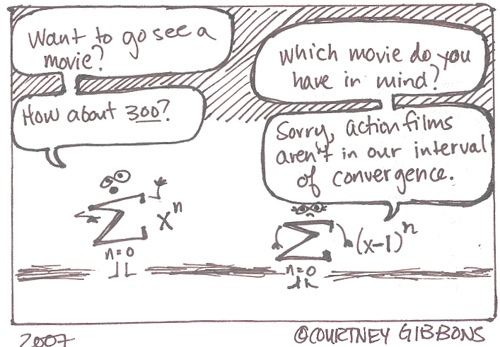 Want to go see a
movie?
Which movie do you
have in mind?
How about 300?
Sorry, action films
aren't in our interval
of convergence.
∑ xⁿ
n=0
∑ (x-1)ⁿ
n=0
2007
©COURTNEY GIBBONS